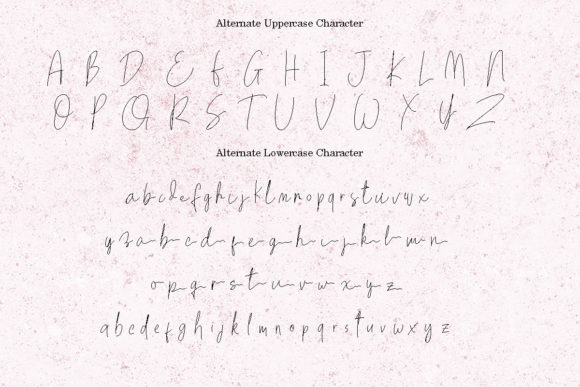 Alternate Uppercase Character
A B D E f G H I J K L M n
O P Q R S T U V W X Y Z
Alternate Lowercase Character
abcdefghcjklmnopqrstuvwx
yza b c d f e g h c j k l m n
o p q r s t u v w x y z
abcdefghijklmnopqrstuvwxyz